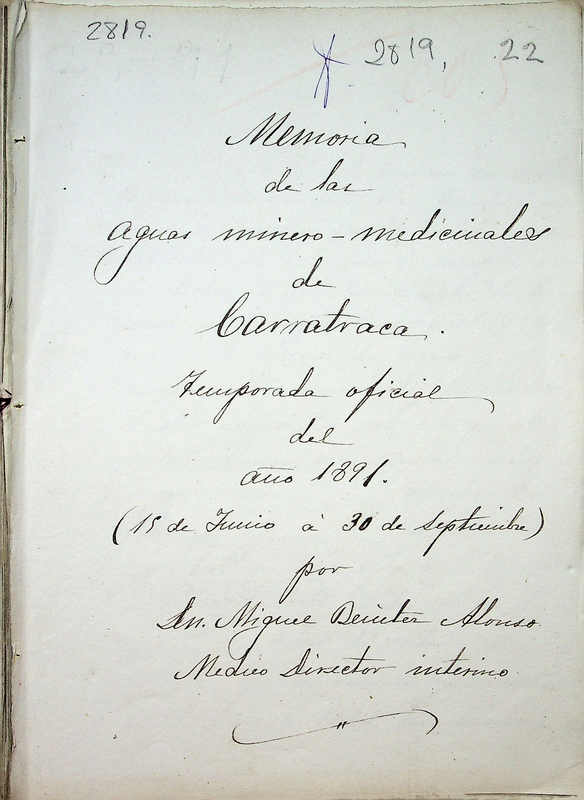 2819.
2819, 22
Memoria
de las
aguas minero-medicinales
de
Carratraca.
Temporada oficial
del
año 1891.
(15 de Junio á 30 de Septiembre)
por
Dn. Miguel Benitez Alonso
Medico Director interino